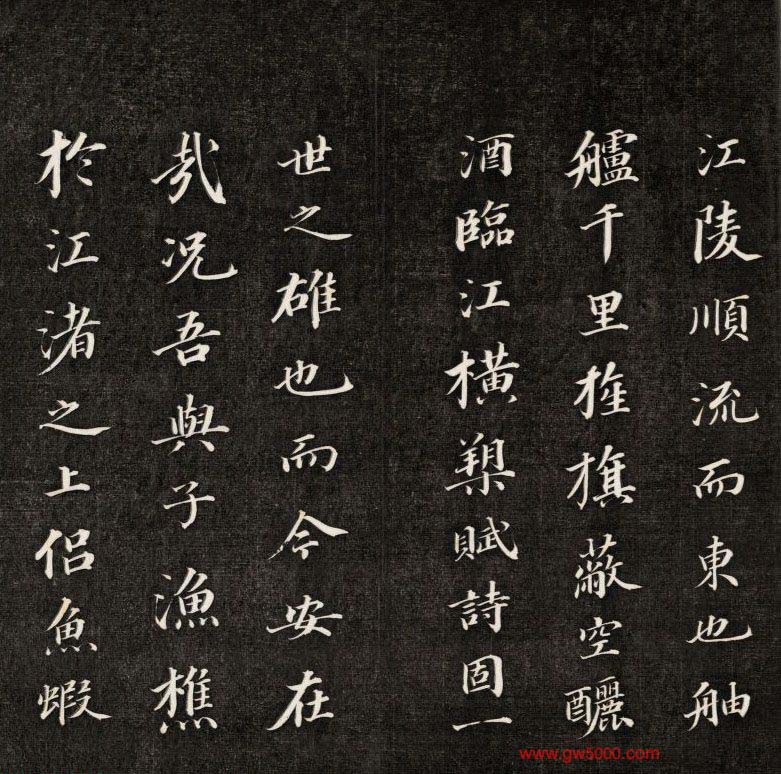 江陵順流而東也舳
艫千里旌旗蔽空釃
酒臨江橫槊賦詩固一
世之雄也而今安在
哉況吾與子漁樵
於江渚之上侣魚蝦
www.gw5000.com